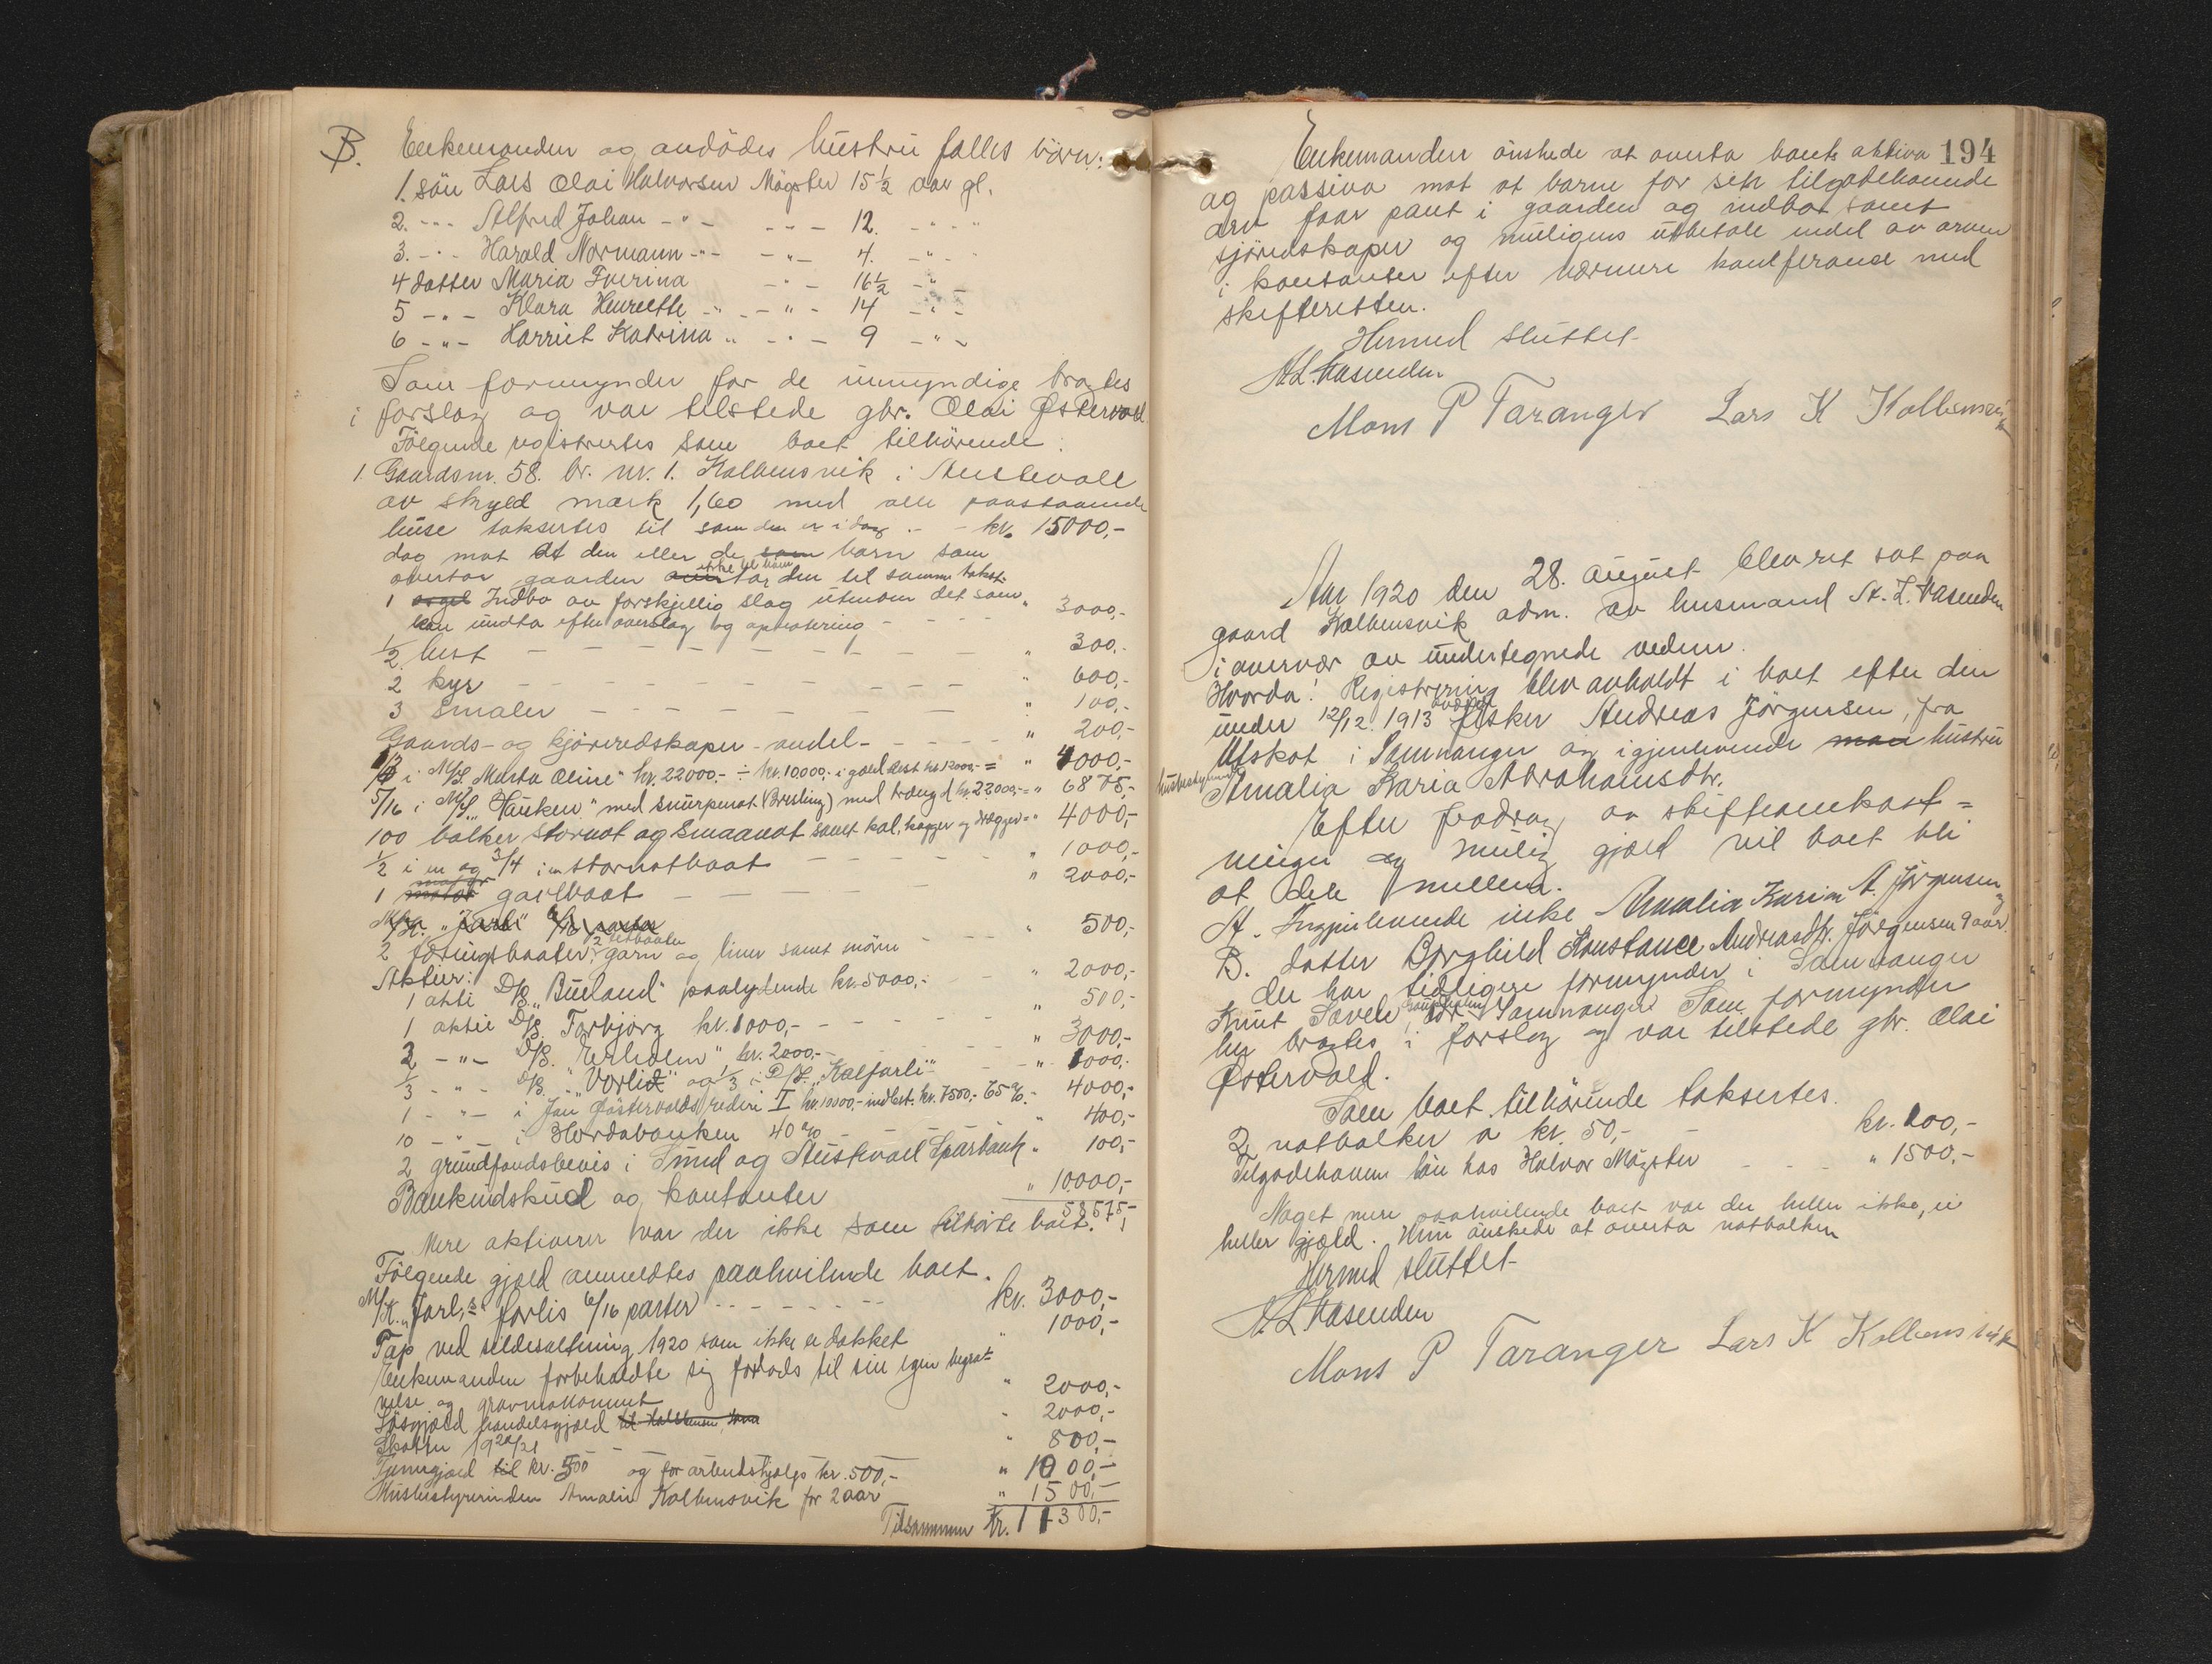 B. Enkemanden og avdödes hustru falles börn:
1. sön Lars Olai Halvorsen Mögster 15½ aar gl.
2. -"- Alfred Johan -"- -"- 12. -"-
3. -"- Harald Normann -"- -"- 4. -"-
4 datter Maria Severina -"- 16½ -"-
5 -"- Klara Henreette -"- -"- 14 -"-
6 -"- Harriet Katrina " -"- 9 -"-
Som formynder for de umyndige bragtes
i forslag og var tilstede gbr. Olai Østervold
Fölgende registrertes som boet tilhörende:
1. Gaardsnr. 58. br. nr. 1. Kalvensvik i Austevoll
av skyld mark 1,60 med alle paastaaende
huse taksertes til som den er i dag - kr. 15000,-
dog mot at den eller de som barn som
overtar gaarden ikke til ham tar den til samme takst.
1 Indbo av forskjellig slag utenom det som
kan undta efter overslag og optatering - " 3000,-
½ hest - - - " 300,-
2 kyr - - - " 600,-
3 smaler - - - " 100,-
Gaards- og kjöreredskaper - andel - " 200,-
⅓ i M/S. Marta Oline" kr. 22000.- ÷ kr. 10000,- i gjæld rest kr 12000,- = " 4000,-
5/16 i M/S. "Hauken" med snurpenot (Brisling) med kr. 22000,- = " 6875,-
100 balker stornot og smaanot samt kal, kagger og drægger " 4000,-
½ i en og 3/4 i en stornotbaat - - " 1000,-
1 motor garlbaat - - " 2000,-
M/K. "Jarl" 6/16 parter
2 færingsbaater, 2 letbaater garn og liner samt mörn - " 500,-
Aktier:
1 akti D/S. "Bueland" paalydende kr. 5000,- - " 2000,-
1 aktie D/S. Torbjörg kr. 1000,- - - " 500,-
2 -"- D/S. "Erholm" kr. 2000,- - " 3000,-
⅓ -"- D/S. "Vorlid" og ⅓ i D/S. "Kaljarli" - " 1000,-
1 -"- i Jan Östervolds rederi I kr. 10000,- indbet. kr. 7500,- 65%. - 4000,-
10 -"- i Hordabanken 40% - - " 400,-
2 grundfondsbevis i Sund og Austevoll Sparbank " 100,-
Bankindskud og kontanter " 10000,-
58575,-
Mere aktiverer var der ikke som tilhörte boet.
Fölgende gjæld anmeldtes paahvilende boet.
M/K. "Jarl"s forlis 6/16 parter - - - kr. 3000,-
Tap ved sildesaltning 1920 som ikke er dækket " 1000,-
Enkemanden forbeholdte sig forlods til sin egen begrav-
velse og gravmonument " 2000,-
Lösgjæld handelsgjæld " 2000,-
Skatten 1920/21 " 800,-
Tjenergjæld til kr. 500 og for arbeidshjælp kr. 500,- " 1000,-
Husbestyrerinden Amalia Kalvensvik for 2 aar " 1500,-
Tilsammen kr. 11300,-
194
Enkemanden önskede at overta boets aktiva
og passiva mot at barna for sitt tilgodehavende
arv faar pant i gaarden og indbo samt
sjöredskaper og muligens utbetale endel av arven
i kontanter efter nærmere konferanse med
skifteretten.
Hermed sluttet.
A. L. Vasenden
Mons P Taranger Lars K Kalvensvik
Aar 1920 den 28. august blev ret sat paa
gaard Kalvensvik adm. av lensmand A. L. Vasenden
i overvær av undertegnede vidner.
Hvorda: Registrering blev avholdt i boet efter den
under 12/12. 1913 avdöde fisker Andreas Jörgensen, fra
Utskot i Samnanger og igjenlevende man hustru
husbestyrerinde Amalia Karia Abrahamsdtr.
Efter fradrag av skifteomkost-
ninger og mulig gjæld vil boet bli
at dele mellem.
A. Ingjenlevende enke Amalia Karin A. Jörgensen og
B. datter Borghild Konstance Andreasdtr. Jörgensen 9 aar.
der har tidligere formynder i Samnanger
Knut Sævele Samnanger Som formynder
her bragtes i forslag og var tilstede gbr. Olai
Østervold.
Som boet tilhörende taksertes.
2 notbalker a kr. 50,- - kr. 100,-
Tilgodehavende lön hos Halvor Mögster - - - " 1500,-
Noget mere paahvilende boet var der heller ikke, ei
heller gjæld. Hun önskede at overta notbalken
Hermed sluttet
A. L. Vasenden
Mons P Taranger Lars K Kalvensvik